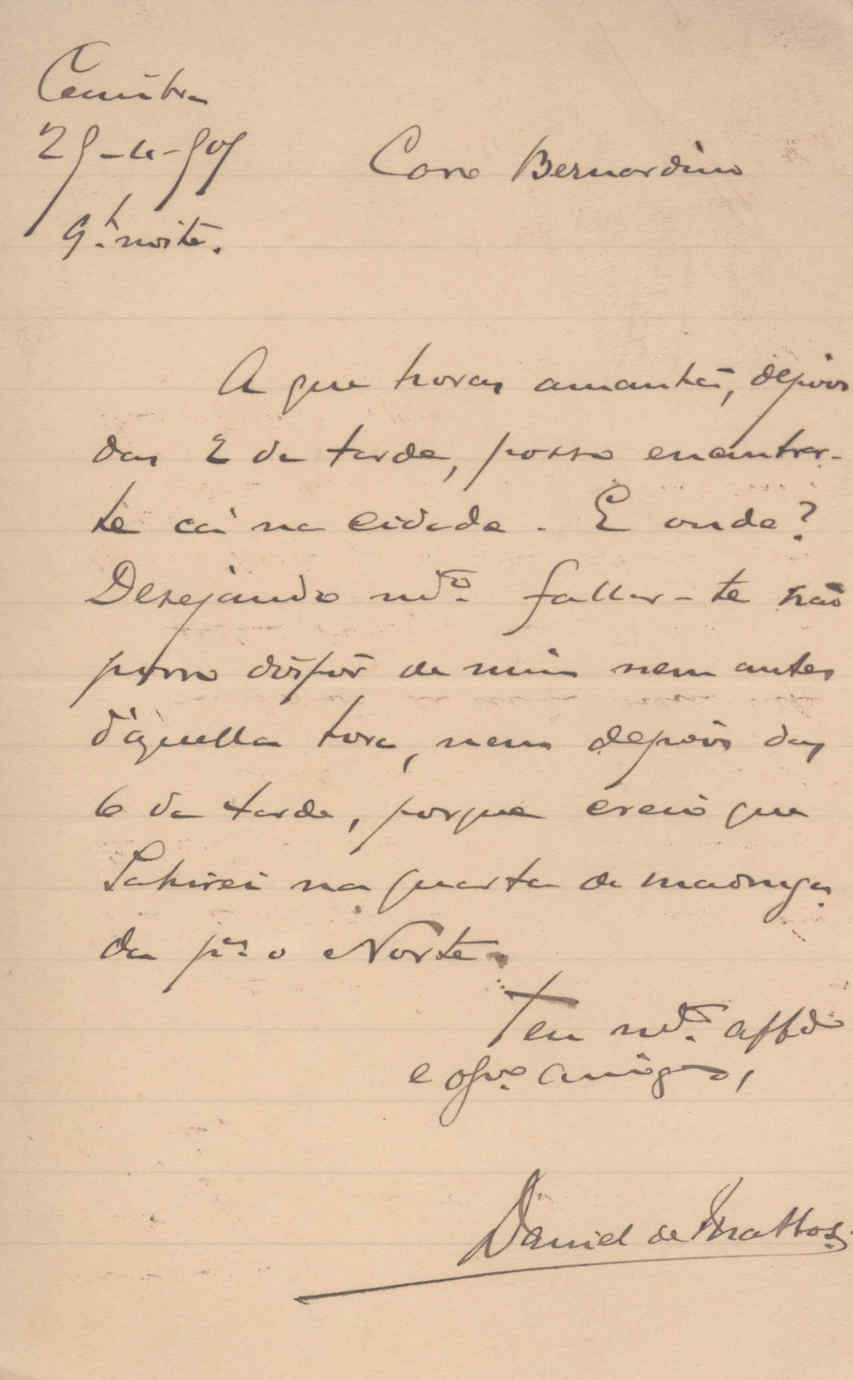 Coimbra
Caro Bernardino
9h. noite.
A que horas amanhã, depois
das 2 da tarde, posso encontrar-
te cá na cidade. E onde?
Desejando mto. fallar-te não
posso dispôr de mim nem antes
d'aquella hora, nem depois das
6 da tarde, porque creio que
Sahirei na quarta de madruga
da pa. o Norte.
Teu mto. affdo
e obgo. amigo,
Daniel de Mattos